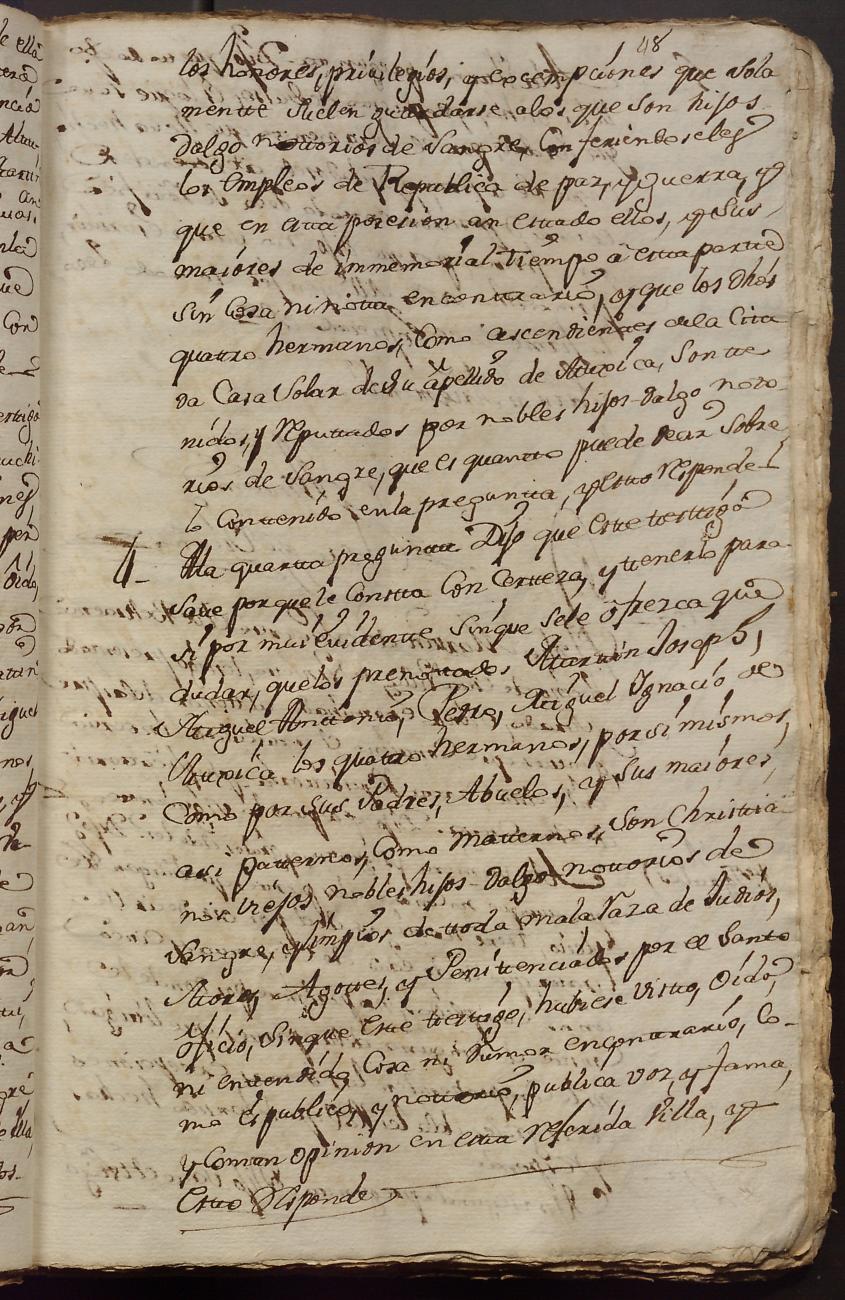 48
los honores, privilegios, y excempciones que sola
mentte suelen guardarse alos que son hijos
dalgo nottorios de Sangre, Confeririendoseles
los Empleos de Republica de paz, y guerra, y
que en esta posesion an estado ellos, y sus
maiores de immemorial tiempo â esta partte
sin Cosa ni notta encontrario, y que los dhos
quattro hermanos, Como ascendientes dela Cita
da Casa Solar de su apellido de, son tte
nidos, y Reputtados por nobles hijos-dalgo notto
rios de Sangre, que es quantto puede decir sobre
lo Conttenido enla pregunta, y estto responde
4- Ala quarta pregunta Dijo que este testtigo
save porquele Constta Con Certteza, y ttenerlo para
si por mui evidentte sinque sele ofrezca que
dudar, quelos prenotados Martin Joseph,
Miguel Antonio, Pedro, Miguel Ygnacio de
los quatro hermanos, por si mismos,
Como por sus Padres, Abuelos, y sus maiores,
asi patternos, Como matternos, son Christtia
nos viejos nobles hijos-dalgo nottorios de
Sangre, y limpios de ttoda mala Raza de Judios,
Moros, Agottes, y Penittenciados por el Santto
Oficio, sinque este testtigo, hubiese visto, Oido,
ni entendido Cosa ni Rumor encontrario, Co-
mo es publico, y nottorio, publica voz, y fama,
y Comun opinion en esta Referida Villa, y
Estto Responde